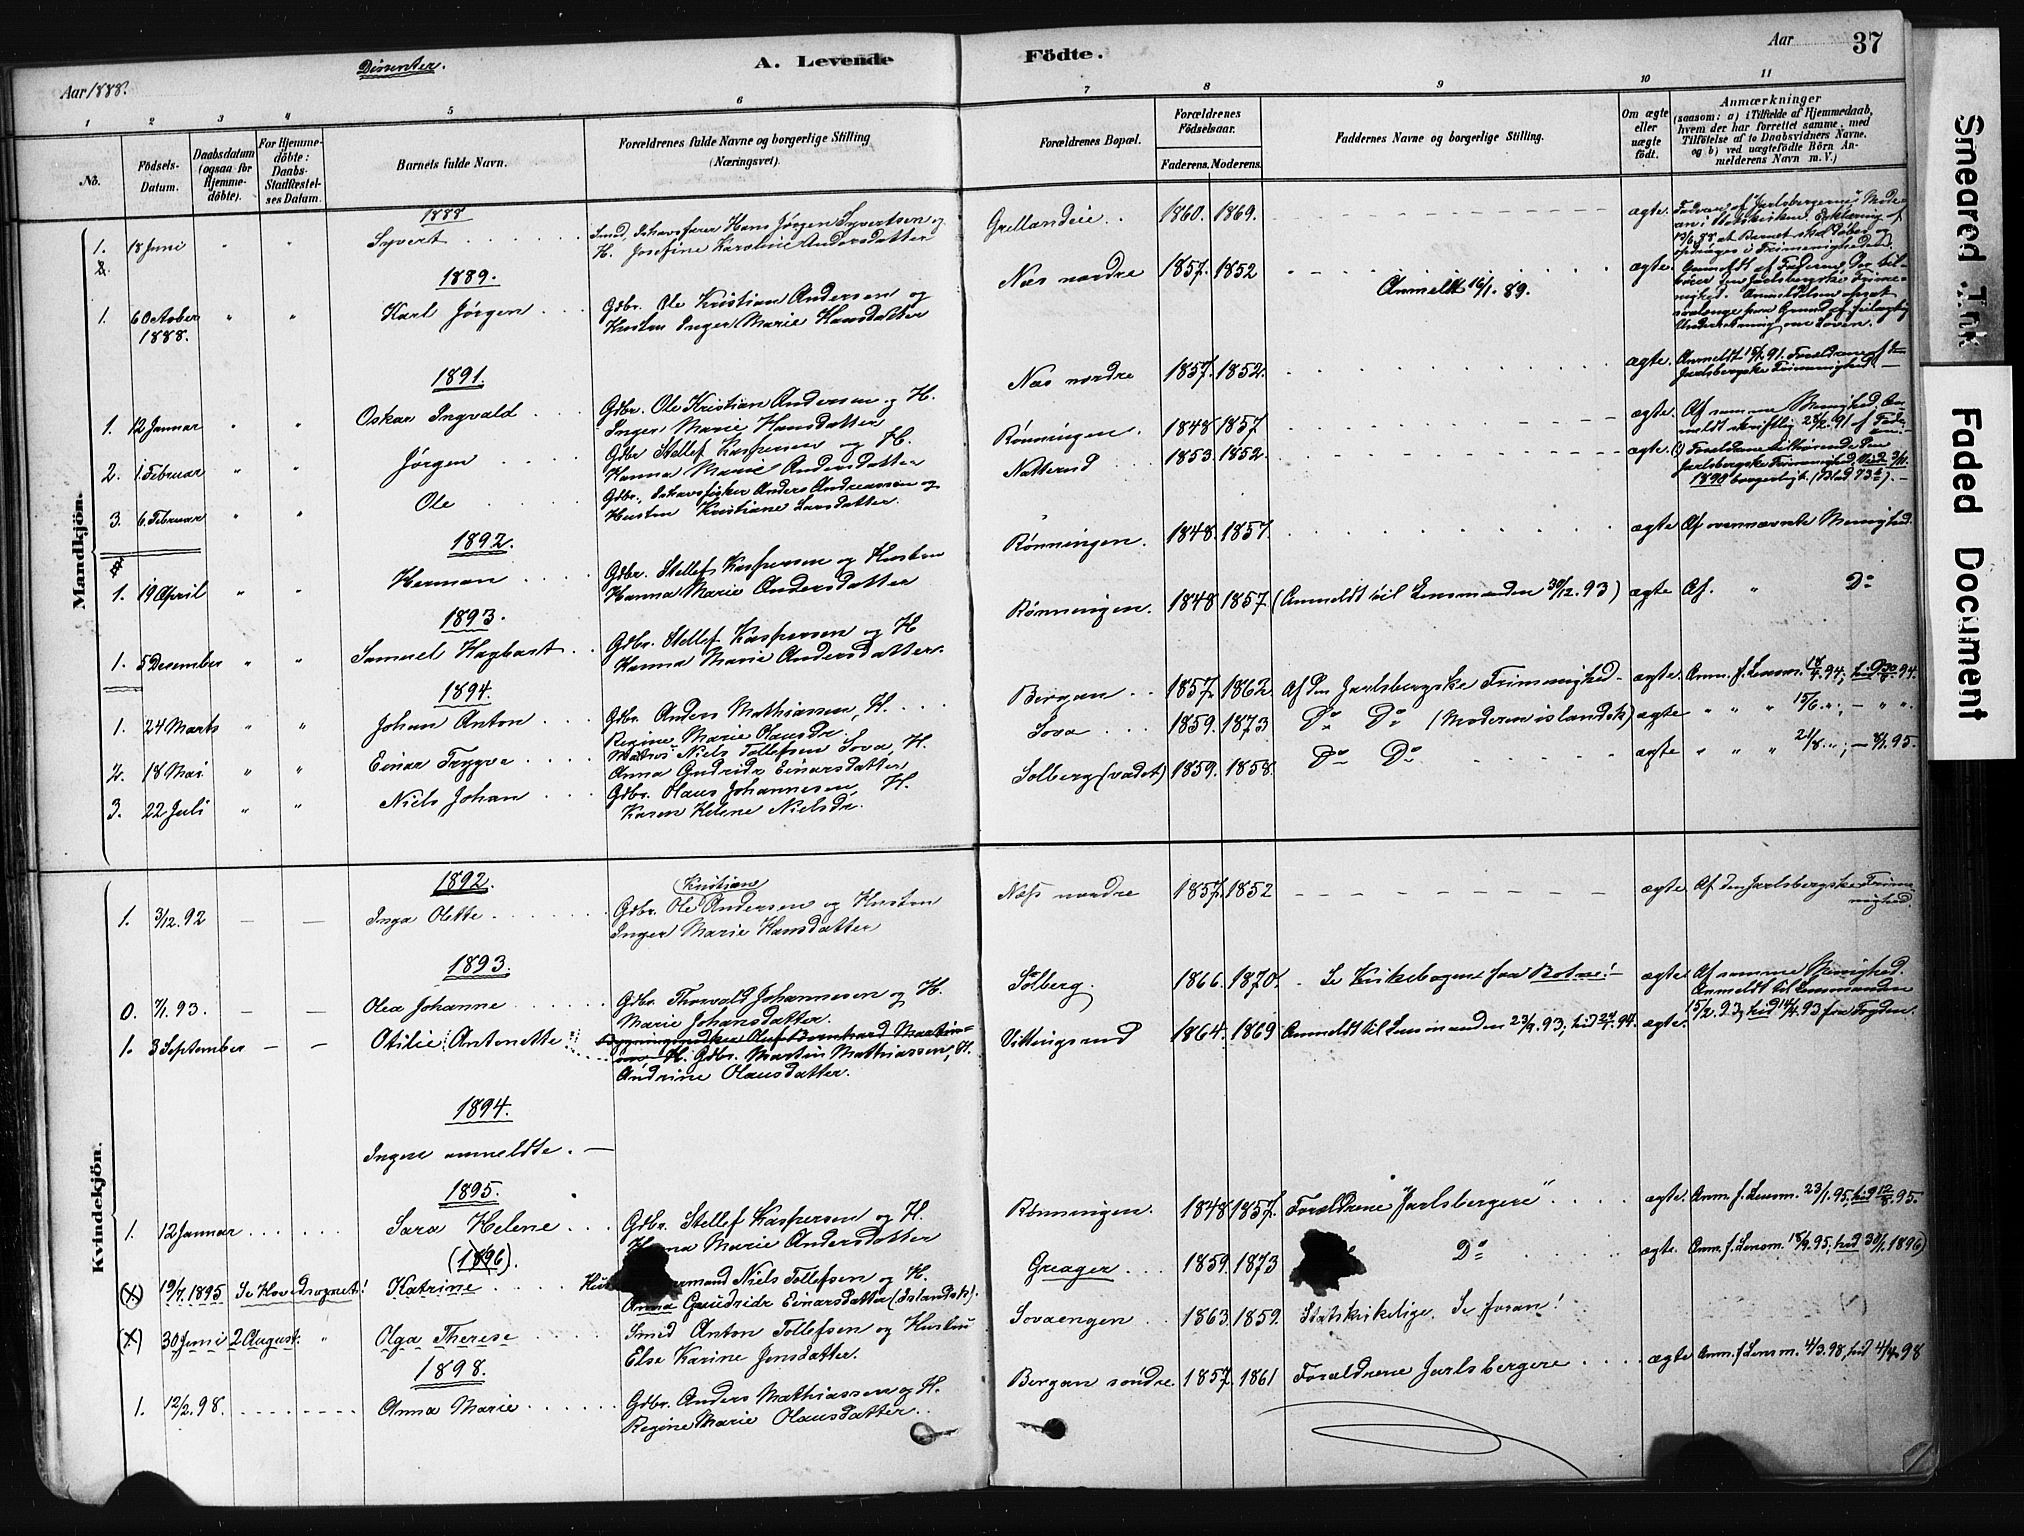 Dissenter.
A. Levende Födte.
Aar 37
Aar 1888.
1 2 3 4 5 6 7 8 9 10 11
No.
Födsels-Datum.
Daabsdatum (ogsaa for Hjemmedöbte).
For Hjemmedöbte: Daabs-Stadfæstelses Datum.
Barnets fulde Navn.
Forældrenes fulde Navne og borgerlige Stilling (Næringsvei).
Forældrenes Bopæl.
Forældrenes Födselsaar.
Faderens. Moderens.
Faddernes Navne og borgerlige Stilling.
Om ægte eller uægte födt.
Anmærkninger
(saasom: a) i Tilfælde af Hjemmedaab, hvem der har forrettet samme, med Tilföielse af to Daabsvidners Navne, og b) ved uægtefödte Börn Anmelderens Navn m. V.)
Mandkjön.
1888
1. 18 Juni " " Syvert Smed, Ishavsfarer Hans Jørgen Syvertsen og
H. Josefine Karoline Andersdatter
Grellandeie 1860. 1869. ægte.
1889.
1. 6 October 1888. " " Karl Jørgen Gdbr. Ole Kristian Andersen og
Hustru Inger Marie Hansdatter
Næs nordre 1857. 1852 Anmeldt 16/1. 89. ægte.
1891.
1. 12 Januar " " Oskar Ingvald Gdbr. Ole Kristian Andersen og H.
Inger Marie Hansdatter
Næs nordre 1857. 1852. ægte.
2. 1 Februar " " Jørgen Gdbr Stellef Kaspersen og H.
Hanna Marie Andersdatter
Rønningen. 1848 1857 ægte. Af samme Menighed
3. 6. Februar " " Ole Gdbr., Ishavsfisker Anders Andreassen og
Hustru Kristiane Larsdatter.
Natterud 1853. 1852. ægte.
1892.
1. 19 April " " Herman Gdbr. Stellef Kaspersen og Hustru
Hanna Marie Andersdatter
Rønningen. 1848. 1857. ægte Af ovennævnte Menighed.
1893.
1. 5 Desember " " Samuel Hagbart Gdbr. Stellef Kaspersen og H
Hanna Marie Andersdatter.
Rønningen. 1848 1857 (Anmeldt til Lensmanden 30/12. 93) ægte Af. " Do
1894.
1. 24 Marts " " Johan Anton Gdbr. Anders Mathiassen, H.
Regine Marie Olausdr.
Bergan 1857. 1862. Af den Jarlsbergske Frimenighed ægte. Anm. f. Lensm.
2. 18 Mai " " Einar Trygve Niels Tollefsen Sova, H.
Anna Gudride Einarsdatter
Sova 1859. 1873 Do Do (Moderen islandsk) ægte " " " 15/6
3. 22 Juli " " Niels Johan Gdbr. Olaus Johannesen, H.
Karen Helene Nielsdr.
Solberg (vadet) 1859. 1858. Do Do ægte " " "
Kvindekjön.
1892.
1. 3/12. 92 — — Inga Olette Gdbr. Ole Kristian Andersen og Hustru
Inger Marie Hansdatter
Næss nordre 1857. 1852 ægte. Af den Jarlsbergske Frimenighed.
1893.
0. 7/1. 93. — — Olea Johanne Gdbr. Thorvald Johannesen og H.
Marie Johansdatter.
Solberg. 1866. 1870. Se Kirkebogen for Botne! ægte. Af samme Menighed.
Anmeldt til Lensmanden
15/2. 93, hid 14/4. 93 fra Fogden.
1. 3 September — — Otilie Antonette H. Gdbr. Martin Mathiassen, H.
Andrine Olausdatter.
Vittingsrud 1864. 1869 Anmeldt til Lensmanden 23/9. 93; hid 94. ægte.
1894.
Ingen anmeldte. —
1895.
1. 12 Januar Sara Helene Gdbr. Stellef Kaspersen og H.
Marie Andersdatter
Rønningen. 1848 1857. Forældrene "Jarlsbergere" ægte. Anm. f. Lensm. 23/1. 95,
(1896).
(X) 19/7. 1895 Se Hovedsognet! Katrine Niels Tollefsen og H.
Anna Gudride Einarsdatter (Islandsk).
Greager 1859. 1873 Do ægte. Anm. f. Lensm. 18/9. 95; 1896)
(X) 30 Juni 2 August. " Olga Therese Smed Anton Tollefsen og Hustru
Else Karine Jensdatter.
Sovaengen 1863. 1859. Statskirkelige. Se foran!
1898.
1. 12/2. 98. Anna Marie Gdbr. Anders Mathiassen og H.
Regine Marie Olausdatter.
Bergan søndre. 1857. 1861 Forældrene Jarlsbergere ægte Anm. f. Lensm. 4/3. 98, hid 4/4. 98
Smeared Ink
Faded Document